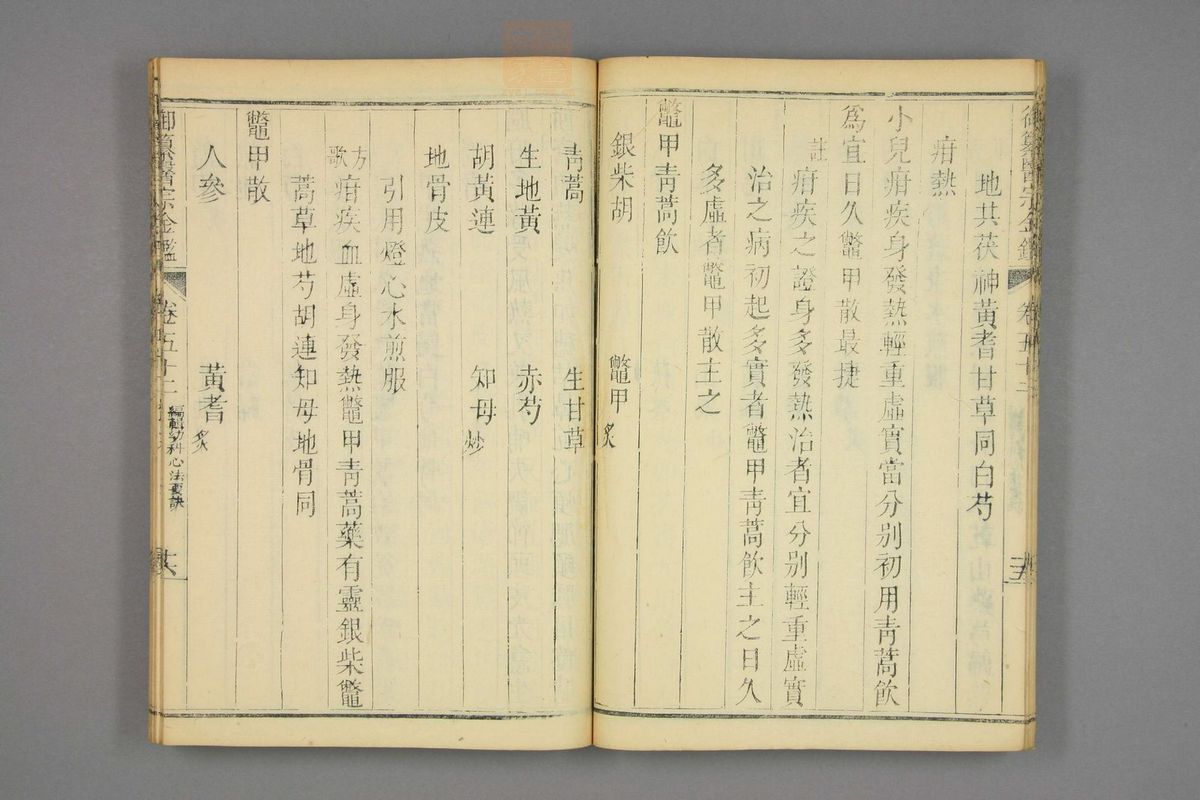 御纂醫宗金鑑 卷五十二
地共茯神黃耆甘草同白芍
疳熱
小兒疳疾身發熱輕重虛實當分別初用靑蒿飮
爲宜日久鼈甲散最捷
註
疳疾之證身多發熱治者宜分別輕重虛實
治之病初起多實者鼈甲靑蒿飮主之日久
多虛者鼈甲散主之
鼈甲靑蒿飮
銀柴胡 鼈甲炙
靑蒿 生甘草
生地黃 赤芍
胡黃連 知母炒
地骨皮
引用燈心水煎服
方歌
疳疾血虛身發熱鼈甲靑蒿藥有靈銀柴鼈
蒿草地芍胡連知母地骨同
鼈甲散
人參 黃耆炙
御纂醫宗金鑑 卷五十二 編輯幼科心法要訣